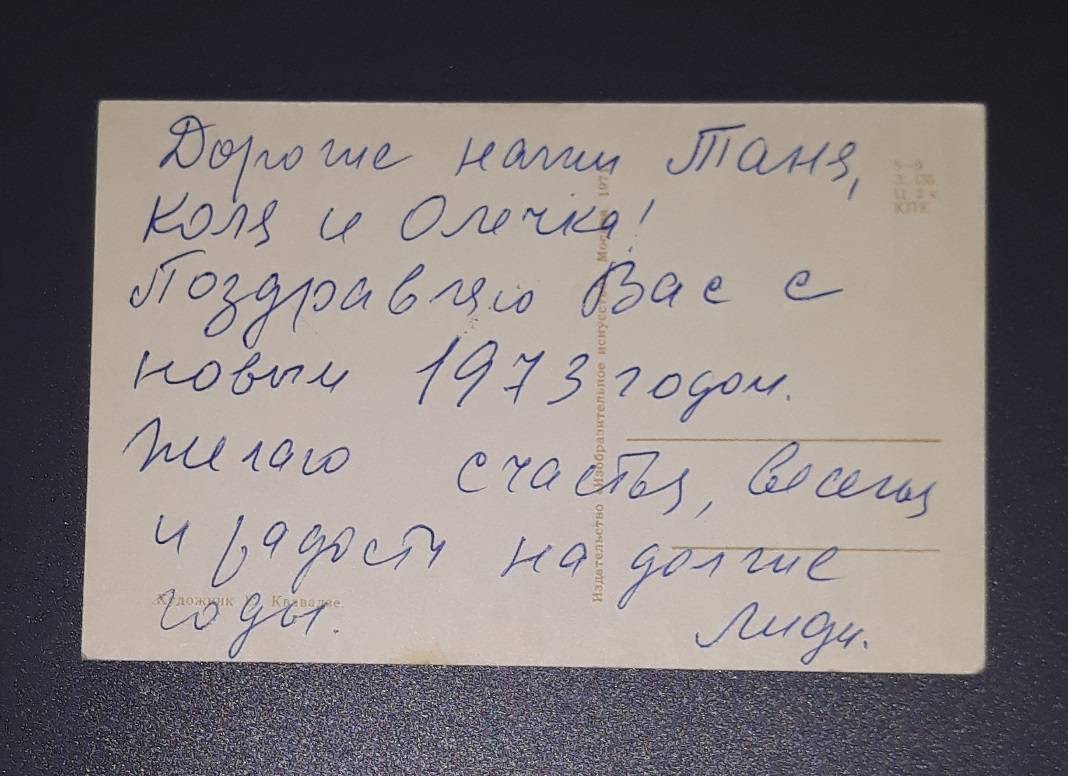 Дорогие наши Таня,
Коля и Олечка!
Поздравляю Вас с
новым 1973 годом.
Желаю счастья, веселья
и радости на долгие
годы. Лиди.
Художник Квавадзе.
Издательство «Изобразительное искусство» Москва 197
5—9